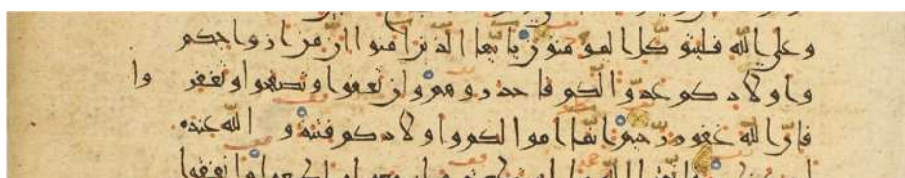 وعلى الله فليتوكل المومنون يايها الذين امنوا ان من ازواجكم
واولادكم عدوا لكم فاحذروهم وان تعفوا وتصفحوا وتغفر وا
فان الله غفور رحيم انما اموالكم واولادكم فتنة و الله عنده
فاتقوا الله ما استطعتم واسمعوا واطيعوا وانفقوا